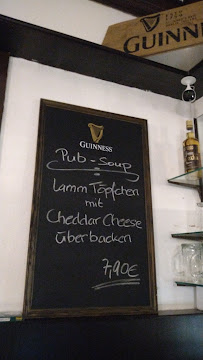 GUINNESS
GUINNESS
Pub-Soup
Lamm Töpfchen
mit
Cheddar Cheese
überbacken
7,90€